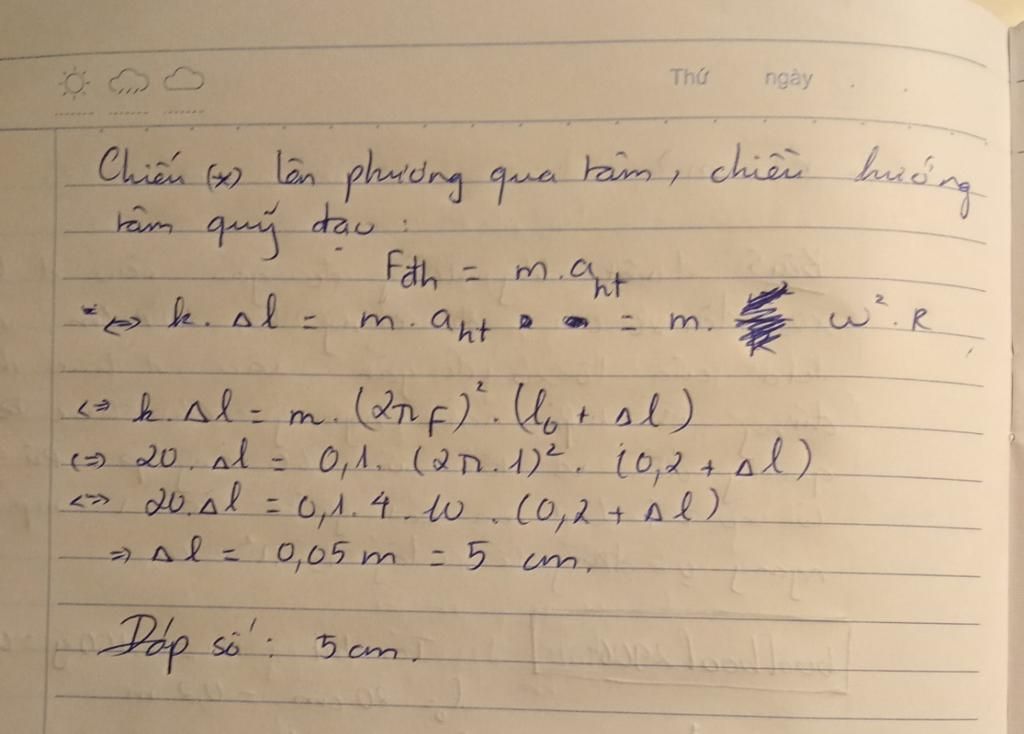 Thứ ngày
Chiếu (*) lên phương qua tâm, chiều hướng
tâm quỹ đạo :
Fđh = m.aht
* ⇔ k. Δl = m. aht = m. ω². R
⇔ k. Δl = m. (2πf)². (l₀ + Δl)
⇔ 20. Δl = 0,1. (2π.1)². (0,2 + Δl)
⇔ 20.Δl = 0,1.4.10 . (0,2 + Δl)
⇒ Δl = 0,05 m = 5 cm.
Đáp số : 5 cm.